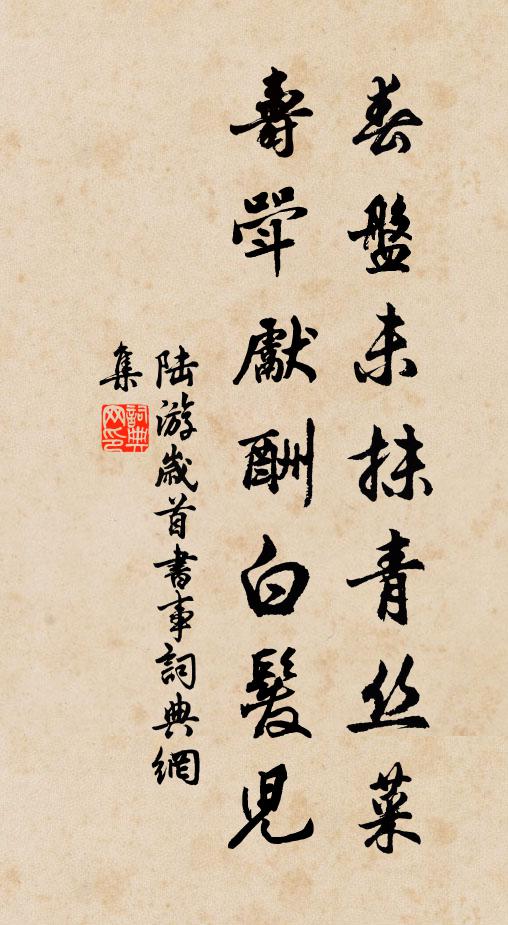 春盤未抹青丝菜
壽斝獻酬白髮兒
陆游歲首書事詞典網
集
詞典
网印